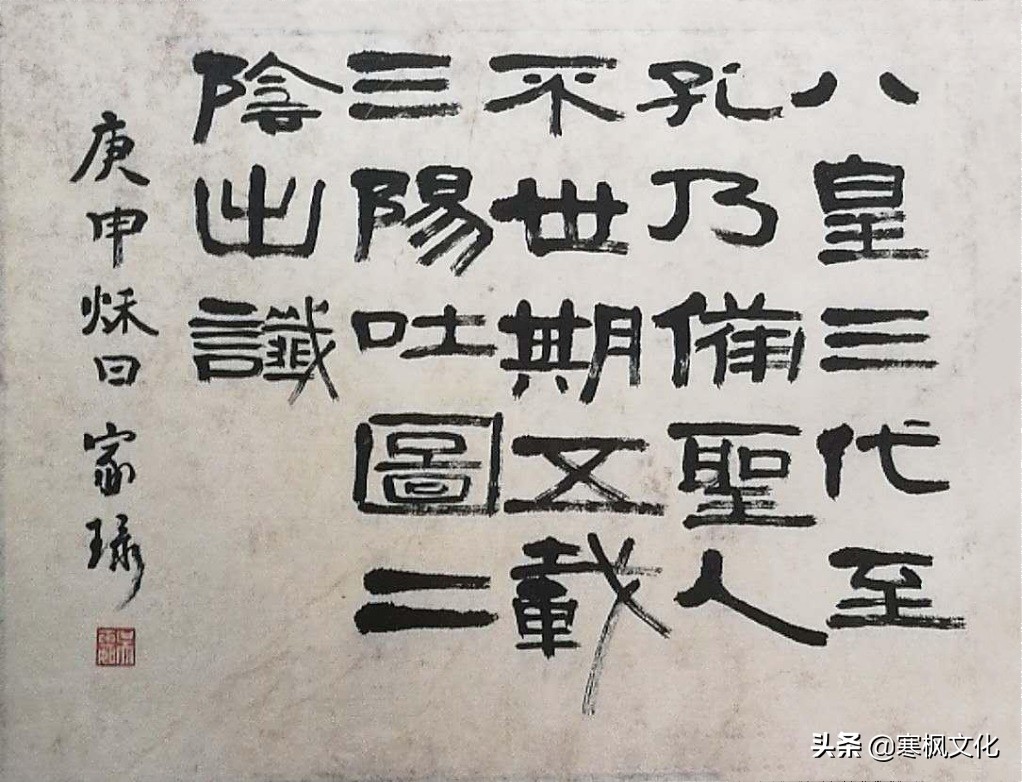 八皇三代至
孔乃備聖人
不世期五載
三陽吐圖二
陰出讖
庚申秌日家琭
头条 @寒枫文化